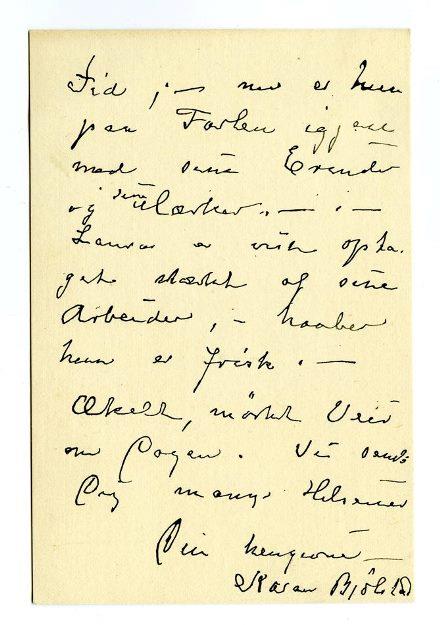 Tid ; – nu er hun
paa Farten igjen
med sine Erender
og sine Mærker. – . –
er vist opta-
get stærkt af sine
Arbeider, – haaber
hun er frisk . –
Ækelt, mörkt Veir
om Dagen. Vi sender
Dig mange Hilsener
Din hengivne –
Karen Bjölstad